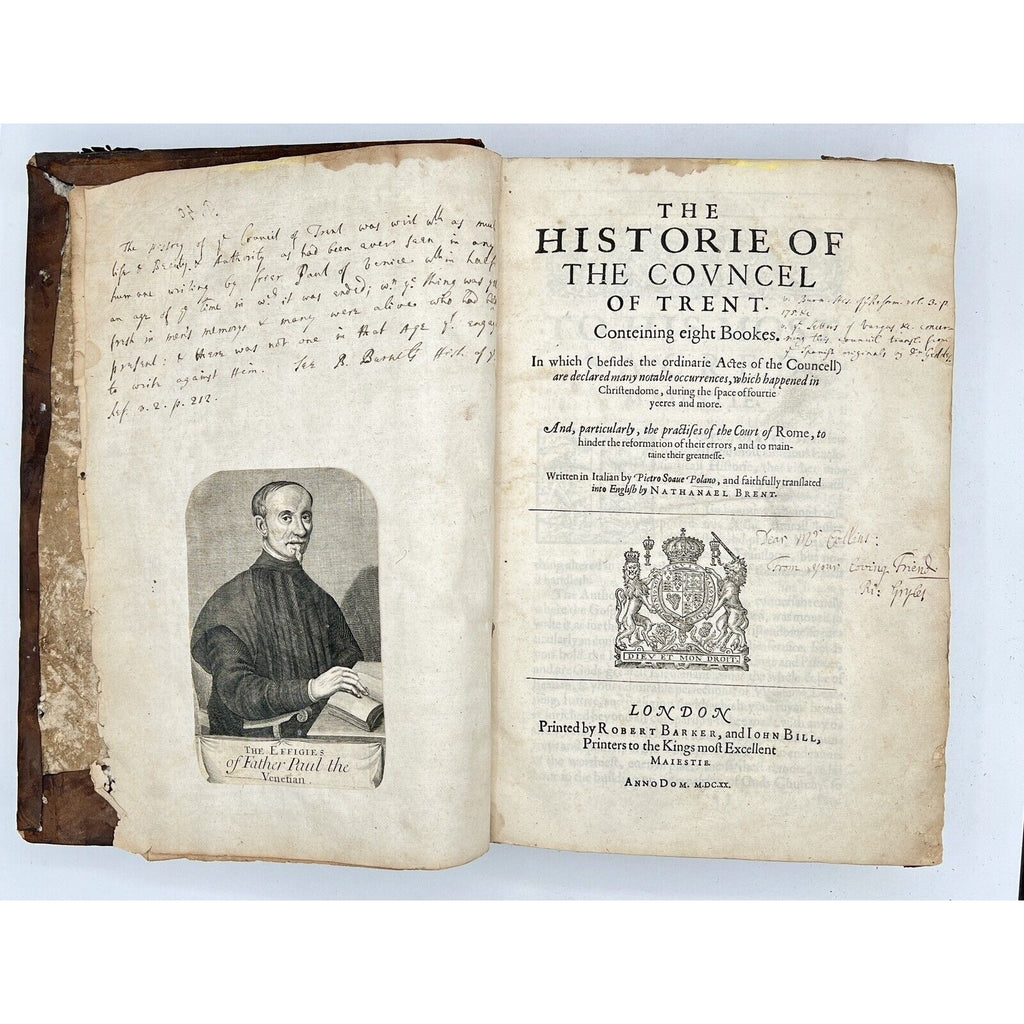 The History of yᵉ Council of Trent was writ wᵗʰ as much
life & Beauty & Authority as had been ever seen in any
humane writing by frier Paul of Venice wᵗʰin half
an age of yᵉ time in wᶜʰ it was ended; wⁿ yᵉ thing was yet
fresh in men's memorys & many were alive who had been
present: & there was not one in that Age yᵗ engag
to write against them. See B. Burnetts Hist. of yᵉ
Ref. v. 2. p. 212.
THE EFFIGIES
of Father Paul the
Venetian.
THE
HISTORIE OF
THE COVNCEL
OF TRENT.
Conteining eight Bookes.
v. Burn. Hist. of Reform. vol. 3. p.
175 &c
v. yᵉ letters of Vargas &c. concer
ning this council transl. from
yᵉ Spanish originals by Dʳ Geddes.
In which (besides the ordinarie Actes of the Councell)
are declared many notable occurrences, which happened in
Christendome, during the space of fourtie
yeeres and more.
And, particularly, the practises of the Court of Rome, to
hinder the reformation of their errors, and to main-
taine their greatnesse.
Written in Italian by Pietro Soaue Polano, and faithfully translated
into English by NATHANAEL BRENT.
Dear Mʳ Collins:
From your loving Friend
Ri: Gryles
DIEV ET MON DROIT.
LONDON
Printed by ROBERT BARKER, and IOHN BILL,
Printers to the Kings most Excellent
MAIESTIE.
ANNO DOM. M.DC.XX.